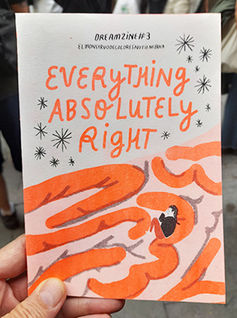 DREAMZINE #3
EVERYTHING
ABSOLUTELY
RIGHT